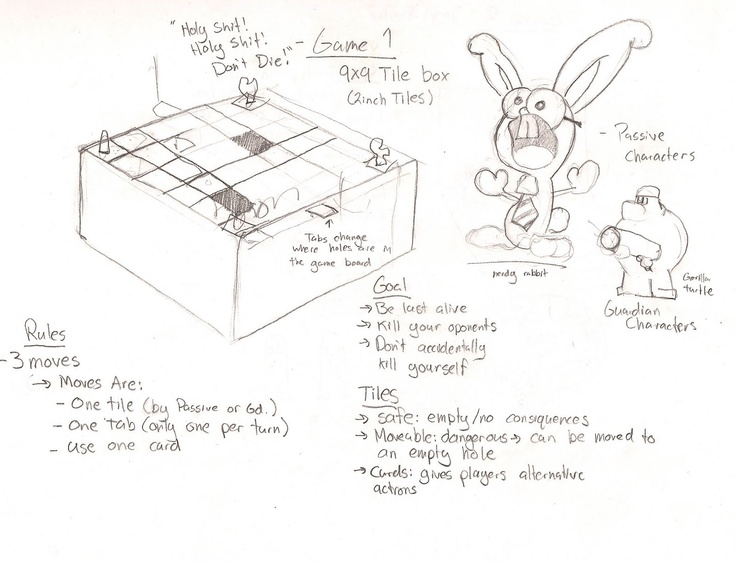 "Holy shit!
Holy shit!
Don't Die!"
- Game 1
9x9 Tile box
(2inch Tiles)
- Passive
Characters
Tabs change
where holes are in
the game board
nerdy rabbit
Gorilla
turtle
Guardian
Characters
Goal
→ Be last alive
→ Kill your oponents
→ Don't accidentally
kill yourself
Rules
- 3 moves
→ Moves Are:
- One tile (by Passive or Gd.)
- One Tab (only one per turn)
- use one card
Tiles
→ safe: empty/no consiquences
→ Moveable: dangerous → can be moved to
an empty hole
→ Cards: gives players alternative
actions